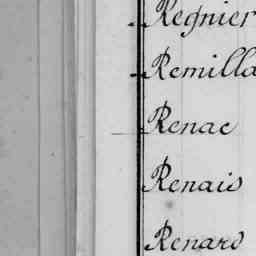 Regnier
Remilla
Renac
Renais
Renard